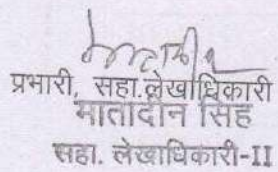 प्रभारी, सहा.लेखाधिकारी
मातादीन सिंह
सहा. लेखाधिकारी-II